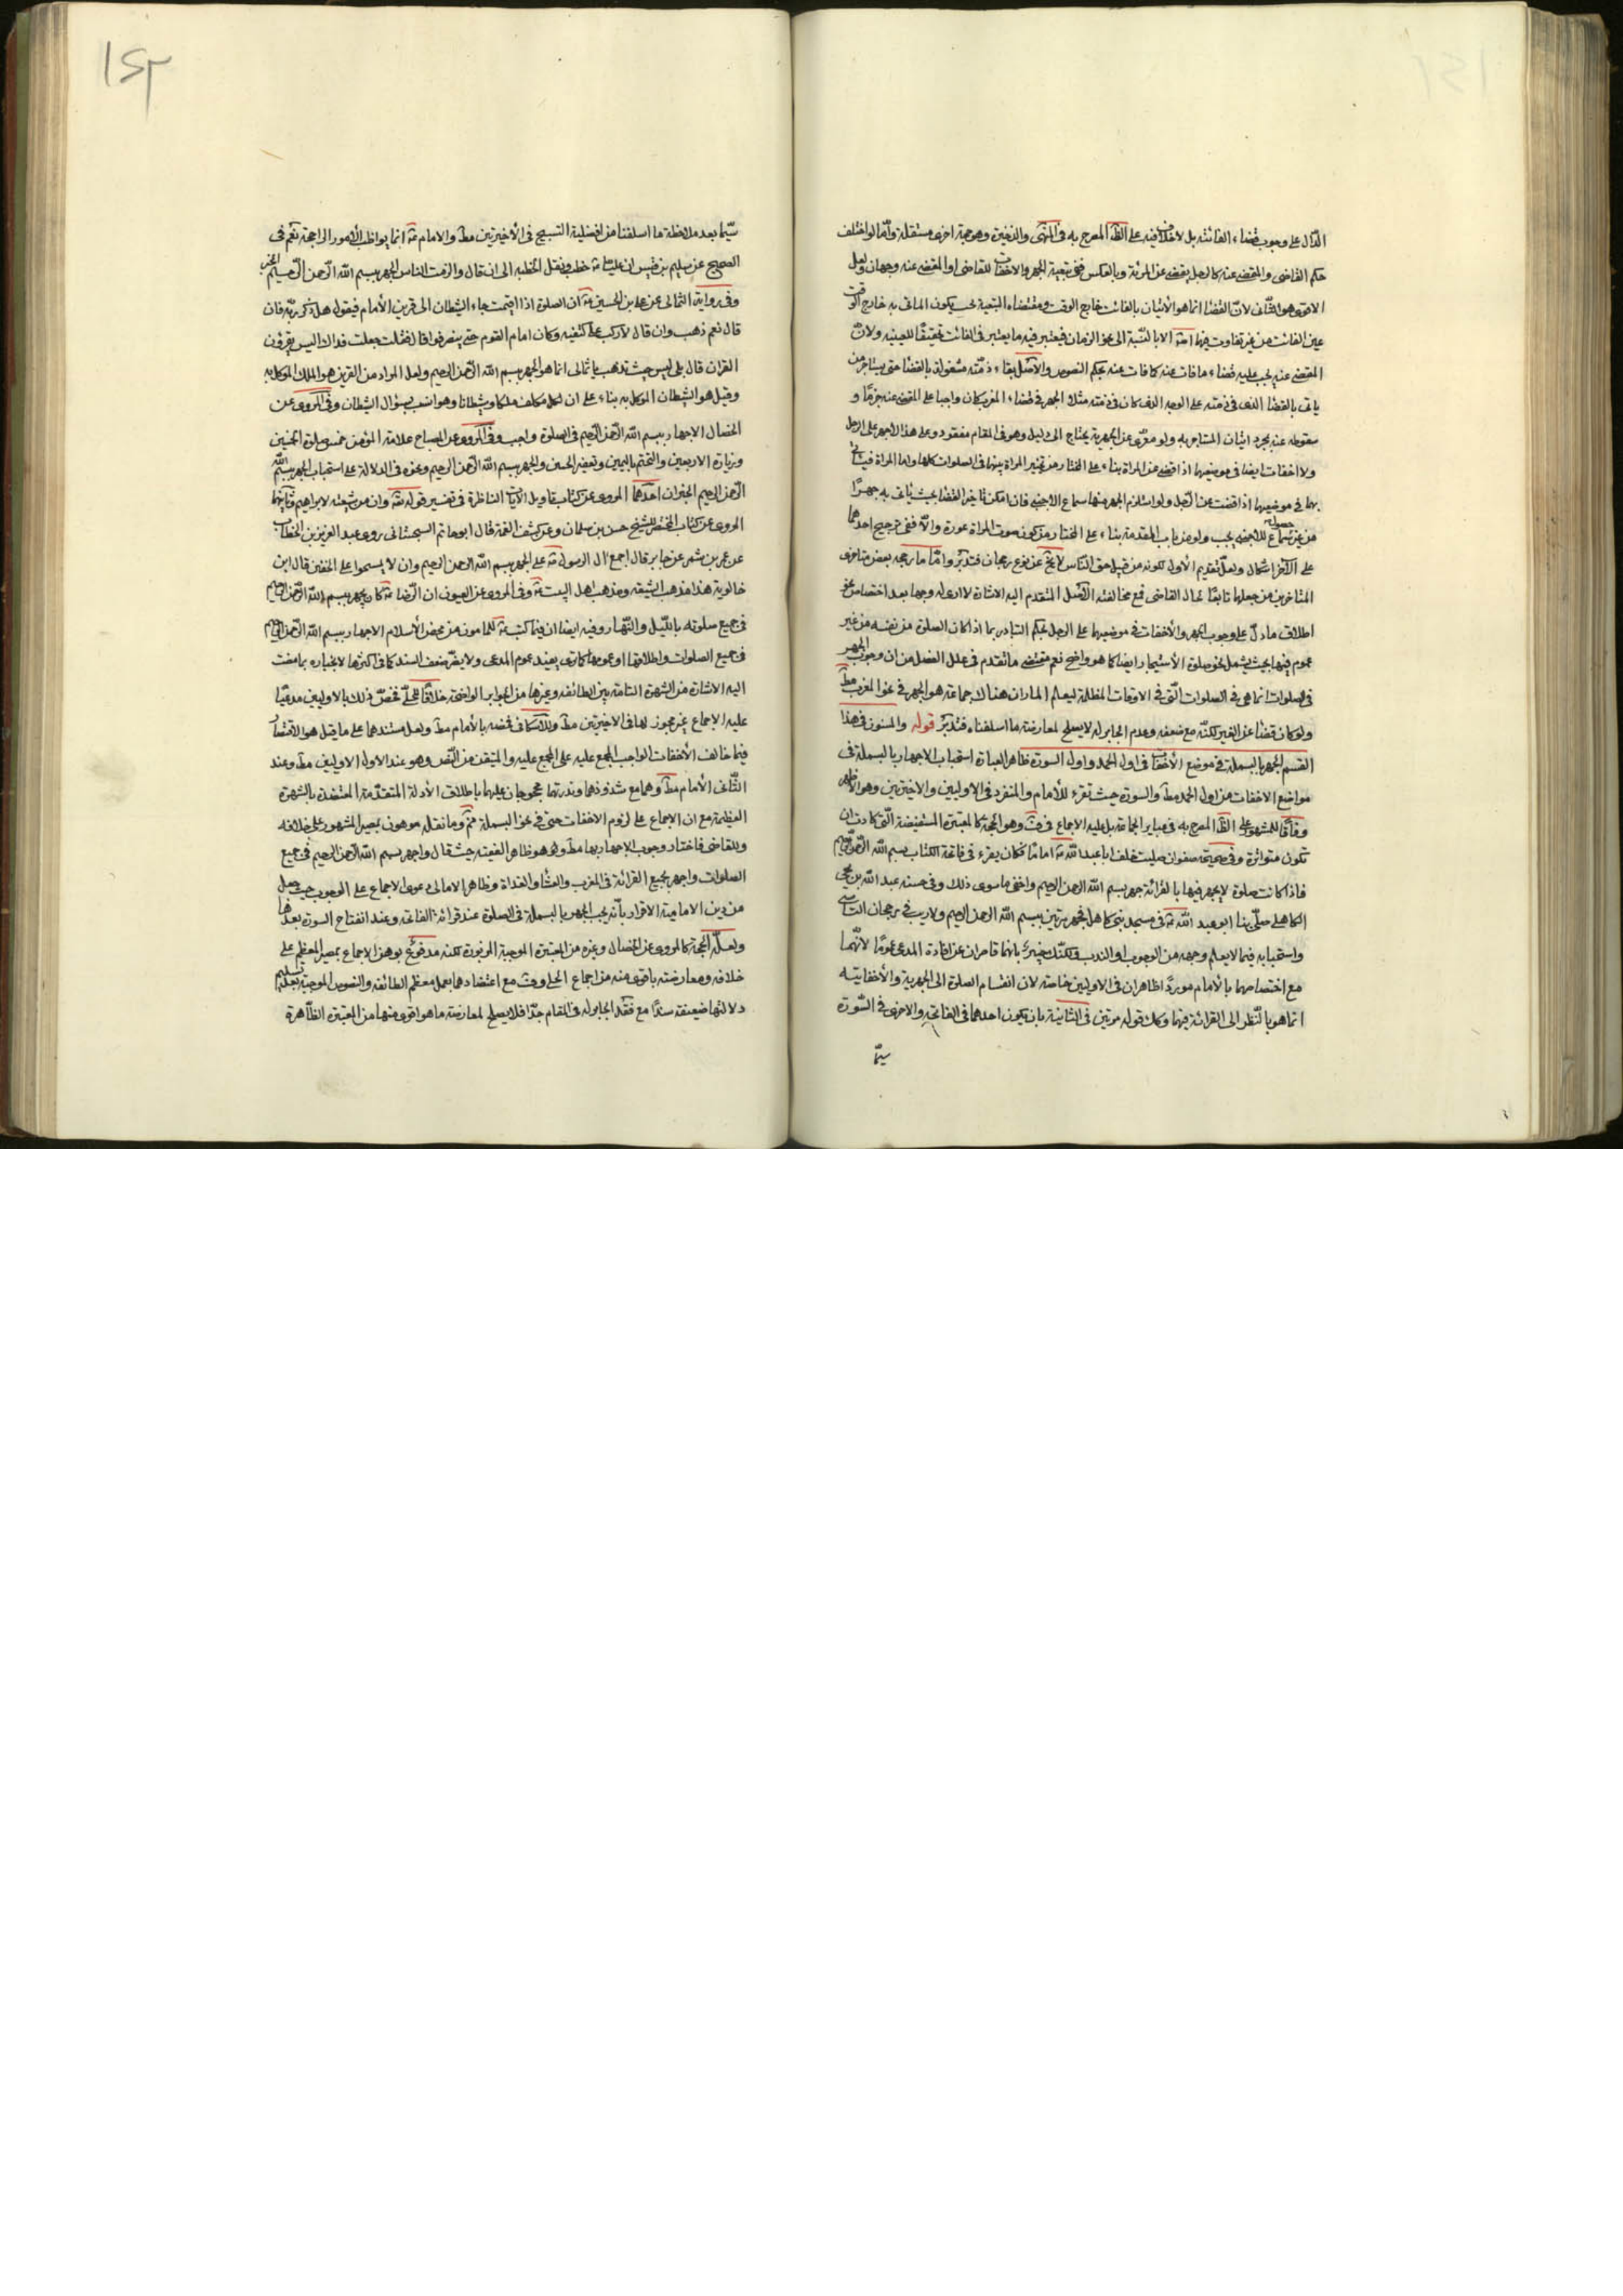 الدال على وجوب قضاء الفائتة بل لا خلاف فيه على الظ المصرح به فى المنتهى والذخيرة وهو حجة اخرى مستقلة وامّا لو اختلف
حكم القاضى والمقضى عنه كالرجل يقضى عن المرئة وبالعكس ففى تبعية الجهر والاخفات للقاضى او المقضى عنه وجهان ولعل
الاقوى هو الثانى لانّ القضا انما هو الاتيان بالفائت خارج الوقت ومقتضاه التبعية بحسب يكون الماتى به خارج الوقت
عين الفائت من غير تفاوت بينهما الا بالنسبة الى نحو الزمان فيعتبر فيه ما يعتبر فى الفائت تحقيقا للعينيه ولانّ
المقضى عنه يجب عليه قضاء ما فات عنه كما فات عنه بحكم النصوص والاصل بقاء ذمّته مشغولة بالقضا حتى يستاجر من
ياتى بالقضا الذى فى ذمته على الوجه الذى كان فى ذمته مثلا الجهر فى قضاء المغرب كان واجبا على المقضى عنه جزمًا و
سقوطه عنه بمجرد اتيان المستاجر به ولو معرّى عن الجهرية يحتاج الى دليل وهو فى المقام مفقود وعلى هذا لا جهر على الرجل
ولا اخفات ايضا فى موضعهما اذا قضى عن المراة بناء على المختار من تخيير المراة بينهما فى الصلوات كلها واما المراة فيتاتى
بهما فى موضعهما اذا قضت عن الرجل ولو استلزم الجهر منها سماع الاجنبى فان امكن تاخير القضا بحيث ياتى به جهرًا
من غير سماع للاجنبى يجب ولو من باب المقدمة بناء على المختار من كون صوت المراة عورة والّا ففى ترجيح احدهما
على الاخر اشكال ولعلّ تقديم الاول لكونه من قبيل حق الناس لا يخ عن نوع رجحان فتدبّر وامّا ما رجحه بعض متاخرى
المتاخرين من جعلها تابعًا لحال القاضى فمع مخالفته الاصل المتقدم اليه الاشارة لا ارى له وجها بعد اختصاص نحو
اطلاق ما دلّ على وجوب الجهر والاخفات فى موضعهما على الرجل بحكم التبادر بما اذا كان الصلوة من نفسه من غير
عموم فيها بحيث يشمل نحو صلوة الاستيجار ايضا كما هو واضح نعم مقتضى ما تقدم فى علل الفضل من ان وجوب الجهر
فى صلوات انما هى فى الصلوات الّتى فى الاوقات المظلمة ليعلم المار ان هناك جماعة هو الجهر فى نحو المغرب مط
ولو كان قضا عن الغير لكنّه مع ضعفه وعدم الجابر له لا يصلح لمعارضة ما اسلفناه فتدبّر قوله والمسنون فى هذا
القسم الجهر بالبسملة فى موضع الاخفات فى اول الحمد واول السورة ظاهر العبارة استحباب الاجهار بالبسملة فى
مواضع الاخفات من اول الحمد مط والسورة حيث تقرء للامام والمنفرد فى الاوليين والاخيرتين وهو الاظهر
وفاقا للمشهور على الظ المصرح به فى عباير الجماعة بل عليه الاجماع فى ف وهو الحجة كالمعتبرة المستفيضة الّتى كادت ان
تكون متواترة وفى صحيحة صفوان صليت خلف ابا عبد الله ع اماما فكان يقرء فى فاتحة الكتاب بسم الله الرحمن الرحيم
فاذا كانت صلوة لا يجهر فيها بالقرائة جهر بسم الله الرحمن الرحيم واخفى ما سوى ذلك وفى حسنة عبد الله بن يحيى
الكاهلى صلّى بنا ابو عبد الله ع فى مسجد بنى كاهل فجهر مرتين ببسم الله الرحمن الرحيم ولا ريب فى رجحان التاسى
واستحبابه فيما لا يعلم وجهه من الوجوب او الندب ولكنّك خبير بانهما قاصران عن افادة المدعى عموما لانّهما
مع اختصاصهما بالامام موردًا ظاهران فى الاوليين خاصة لان انقسام الصلوة الى الجهرية والاخفاتيه
انما هو بالنظر الى القرائة فيهما وكك قوله مرتين فى الثانية بان يكون احدهما فى الفاتحة والاخرى فى السّورة
سيّما
١٥٢
سيّما بعد ملاحظة ما اسلفنا من افضلية التسبيح فى الاخيرتين مط والامام ع انما يواظب الامور الراجحة نعم فى
الصحيح عن سليم بن قيس ان عليّا ع خطب ونقل الخطبة الى ان قال والزمت الناس الجهر ببسم الله الرحمن الرحيم الخبر
وفى رواية الثمالى عن على بن الحسين ع ان الصلوة اذا اقيمت جاء الشيطان الى قرين الامام فيقول هل ذكر ربّه فان
قال نعم ذهب وان قال لا ركب على كتفيه وكان امام القوم حتى ينصرفوا قال فقلت جعلت فداك اليس يقرؤن
القران قال بلى ليس حيث تذهب يا ثمالى انما هو الجهر ببسم الله الرحمن الرحيم ولعل المراد من القرين هو الملك الموكل به
وقيل هو الشيطان الموكل به بناء على ان لكل مكلف ملكا وشيطانا وهو انسب بسؤال الشيطان وفى المروى عن
الخصال الاجهار ببسم الله الرحمن الرحيم فى الصلوة واجب وفى المروى عن المصباح علامة المؤمن خمس صلوة الخمسين
وزيارة الاربعين والتختم باليمين وتعفير الجبين والجهر ببسم الله الرحمن الرحيم ونحوه فى الدلالة على استحباب الجهر ببسم الله
الرحمن الرحيم الخبران احدهما المروى عن كتاب تاويل الايات الناظرة فى تفسير قوله تع وان من شيعته لابراهيم وثانيهما
المروى عن كتاب المختصر للشيخ حسن بن سلمان وعن كشف الغمة قال ابو حاتم السجستانى روى عبد العزيز بن الخطاب
عن عمر بن شمر عن جابر قال اجمع ال الرسول ع على الجهر ببسم الله الرحمن الرحيم وان لا يمسحوا على الخفين قال ابن
خالويه هذا مذهب الشيعه ومذهب اهل البيت ع وفى المروى عن العيون ان الرضا ع كان يجهر ببسم الله الرحمن الرحيم
فى جميع صلوته بالليل والنهار وفيه ايضا ان فيما كتبه ع للمامون من محض الاسلام الاجهار ببسم الله الرحمن الرحيم
فى جميع الصلوات واطلاقها او عمومها كما ترى يفيد عموم المدعى ولا يضرّ ضعف السند كما فى اكثرها لانجباره بما مضت
اليه الاشارة من الشهرة التامة بين الطائفه وغيرها من الجوابر الواضحة خلافا للحلّى فخصّ ذلك بالاوليين مدعيًا
عليه الاجماع غير مجوز لها فى الاخيرتين مط وللاسكافى فخصه بالامام مط ولعل مستندهما على ما قيل هو الاقتصار
فيما خالف الاخفات الواجب المجمع عليه على المجمع عليه والمتيقن من النّص وهو عند الاول الاوليين مط وعند
الثّانى الامام مط وهما مع شذوذهما وندرتهما محجوجان عليهما باطلاق الادلة المتقدّمة المعتضدة بالشهرة
العظيمة مع ان الاجماع على لزوم الاخفات حتى فى نحو البسملة مم وما نقله موهون بمصير المشهور على خلافه
وللقاضى فاختار وجوب الاجهار بها مط وهو ظاهر الفقيه حيث قال واجهر ببسم الله الرحمن الرحيم فى جميع
الصلوات واجهر بجميع القرائة فى المغرب والعشاء والغداة وظاهر الامالى دعوى الاجماع على الوجوب حيث جعل
من دين الامامية الاقرار بانّه يجب الجهر بالبسملة فى الصلوة عند قرائة الفاتحة وعند افتتاح السورة بعدها
ولعلّه الحجة كالمروى عن الخصال وغيره من المعتبرة الموجبة المزبورة لكنه مدفوع بوهن الاجماع بمصير المعظم على
خلافه ومعارضته باقوى منه من اجماع الحلى وف مع اعتضادهما بعمل معظم الطائفه والنصوص الموجبة بعد تسليم
دلالتها ضعيفة سندًا مع فقد الجابر له فى المقام جدّا فلا يصلح لمعارضة ما هو اقوى منها من المعتبرة الظّاهرة